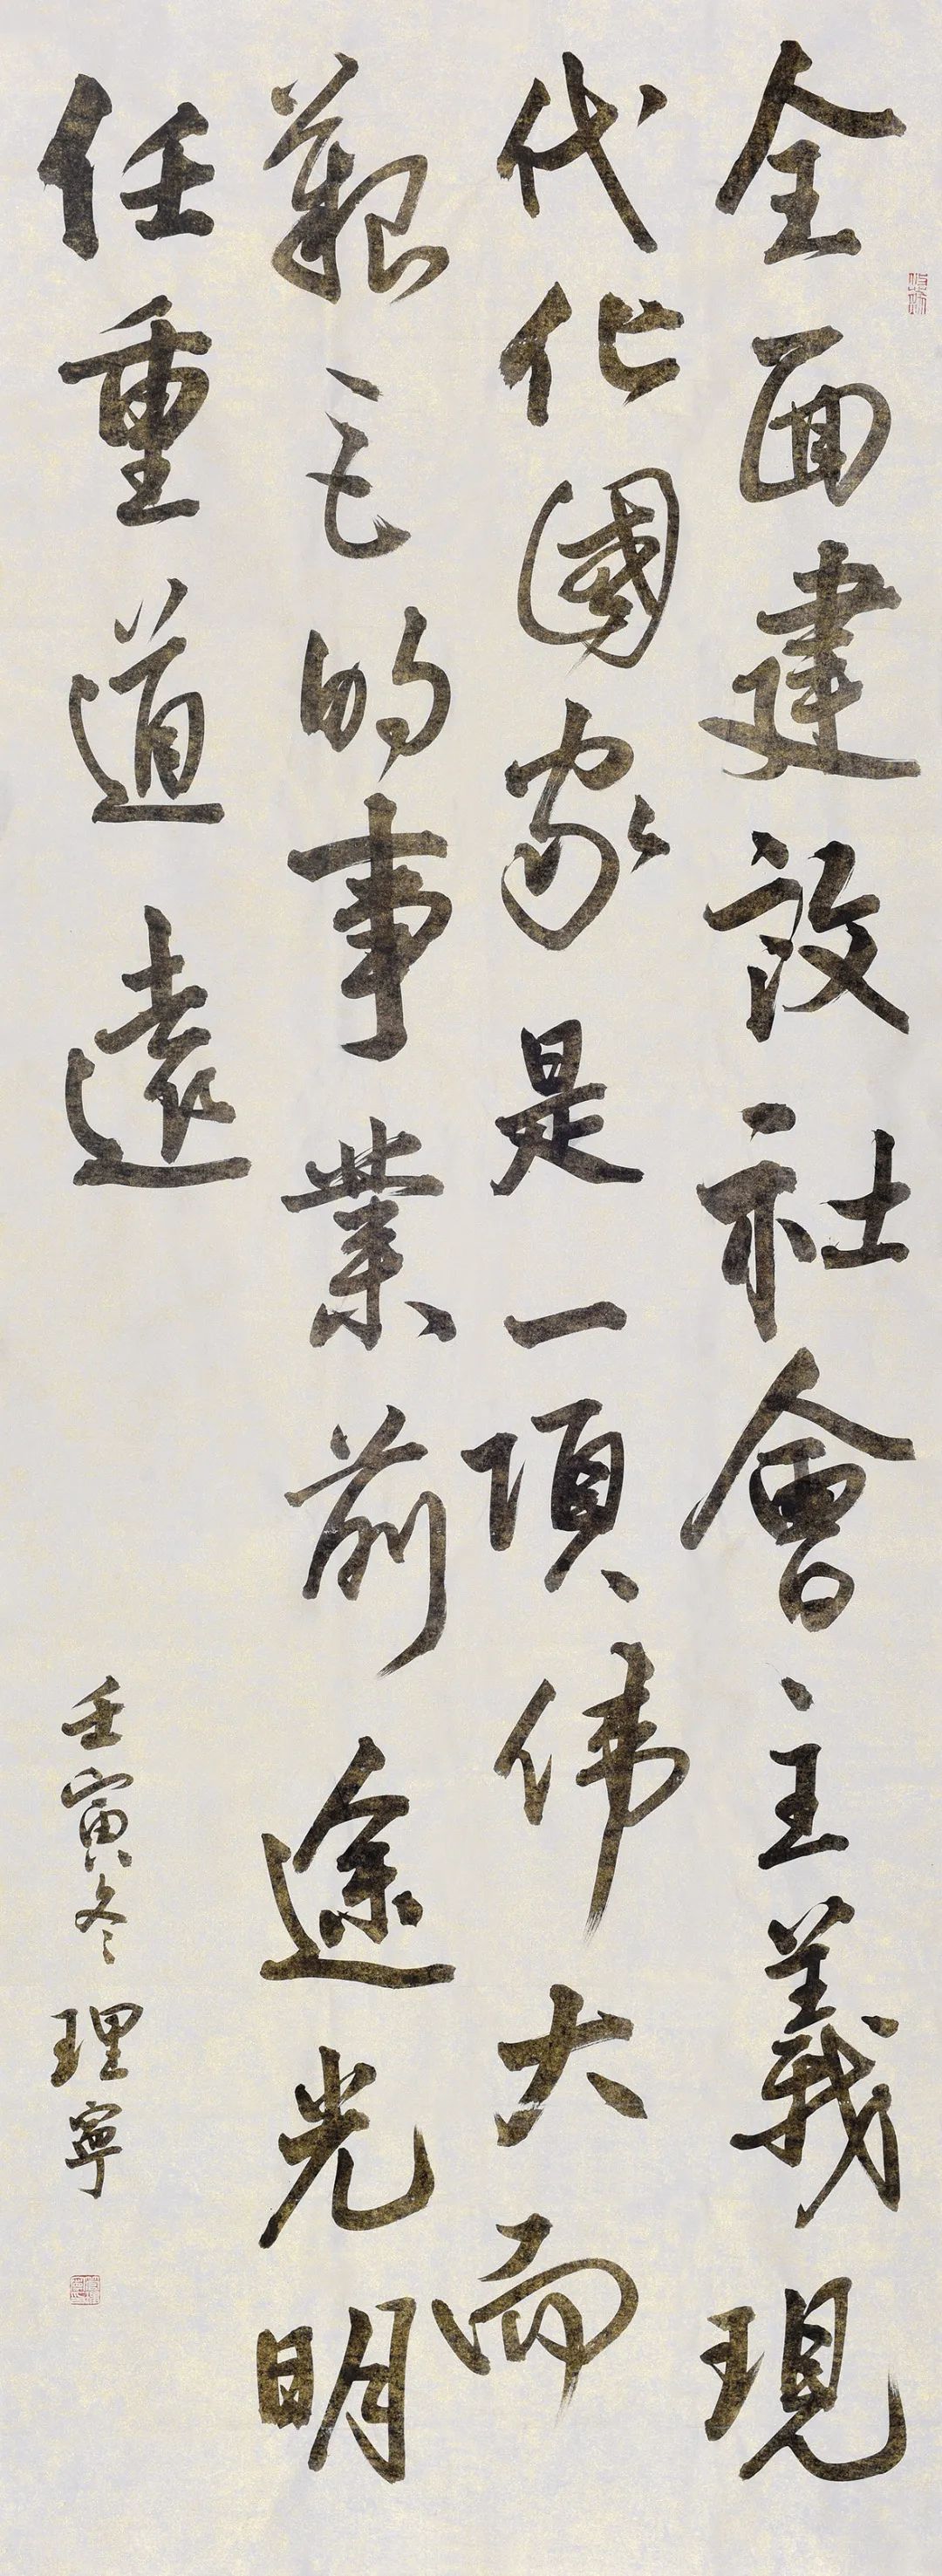 全面建設社會主義現
代化國家是一項伟大而
艱巨的事業前途光明
任重道遠
壬寅冬理寧